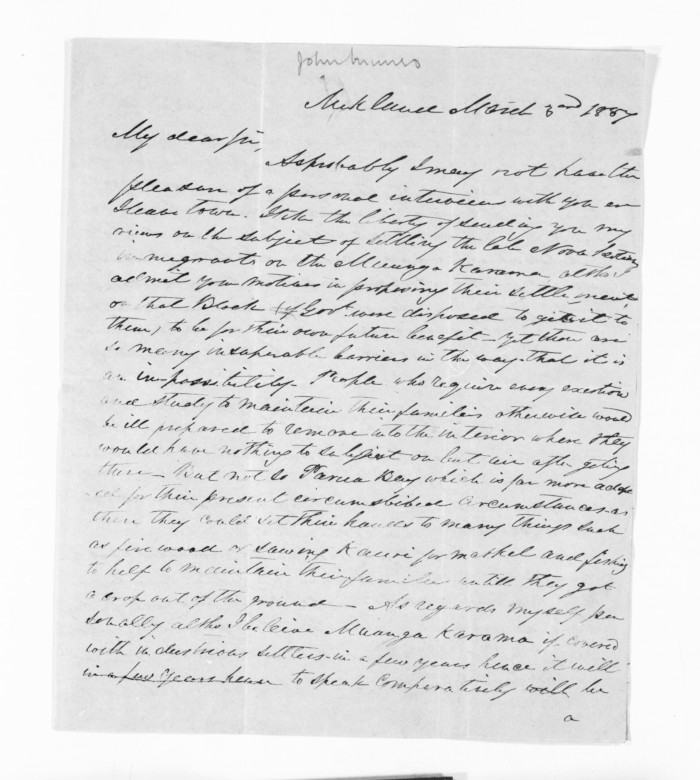 John Munro
Auckland March 3rd 1857
My dear Sir,
As probably I may not have the
pleasure of a personal interview with you ere
I leave town. I take the liberty of sending you my
views on the subject of settling the late Nova Scotian
immigrants on the Mounga Karama altho I
admit your motives in proposing their settlement
on that Block (if Govt. were disposed to get it to
them) to be for their own future benefit - yet there are
so many insuperable barriers in the way that it is
an impossibility - People who require every exertion
and study to maintain their families otherwise would
be ill prepared to remove into the interior where they
would have nothing to subsist on but live after getting
there - But not so Parua Bay which is far more adapt
ed for their present circumstances as
there they could set their hands to many things such
as fire wood or sawing Kauri for market and fishing
to help to maintain their families untill they got
a crop out of the ground - As regards myself per
sonally altho I beleive Muanga Karama if covered
with industrious settlers in a few years hence it will
in a few years hence to speak comparatively will be
a